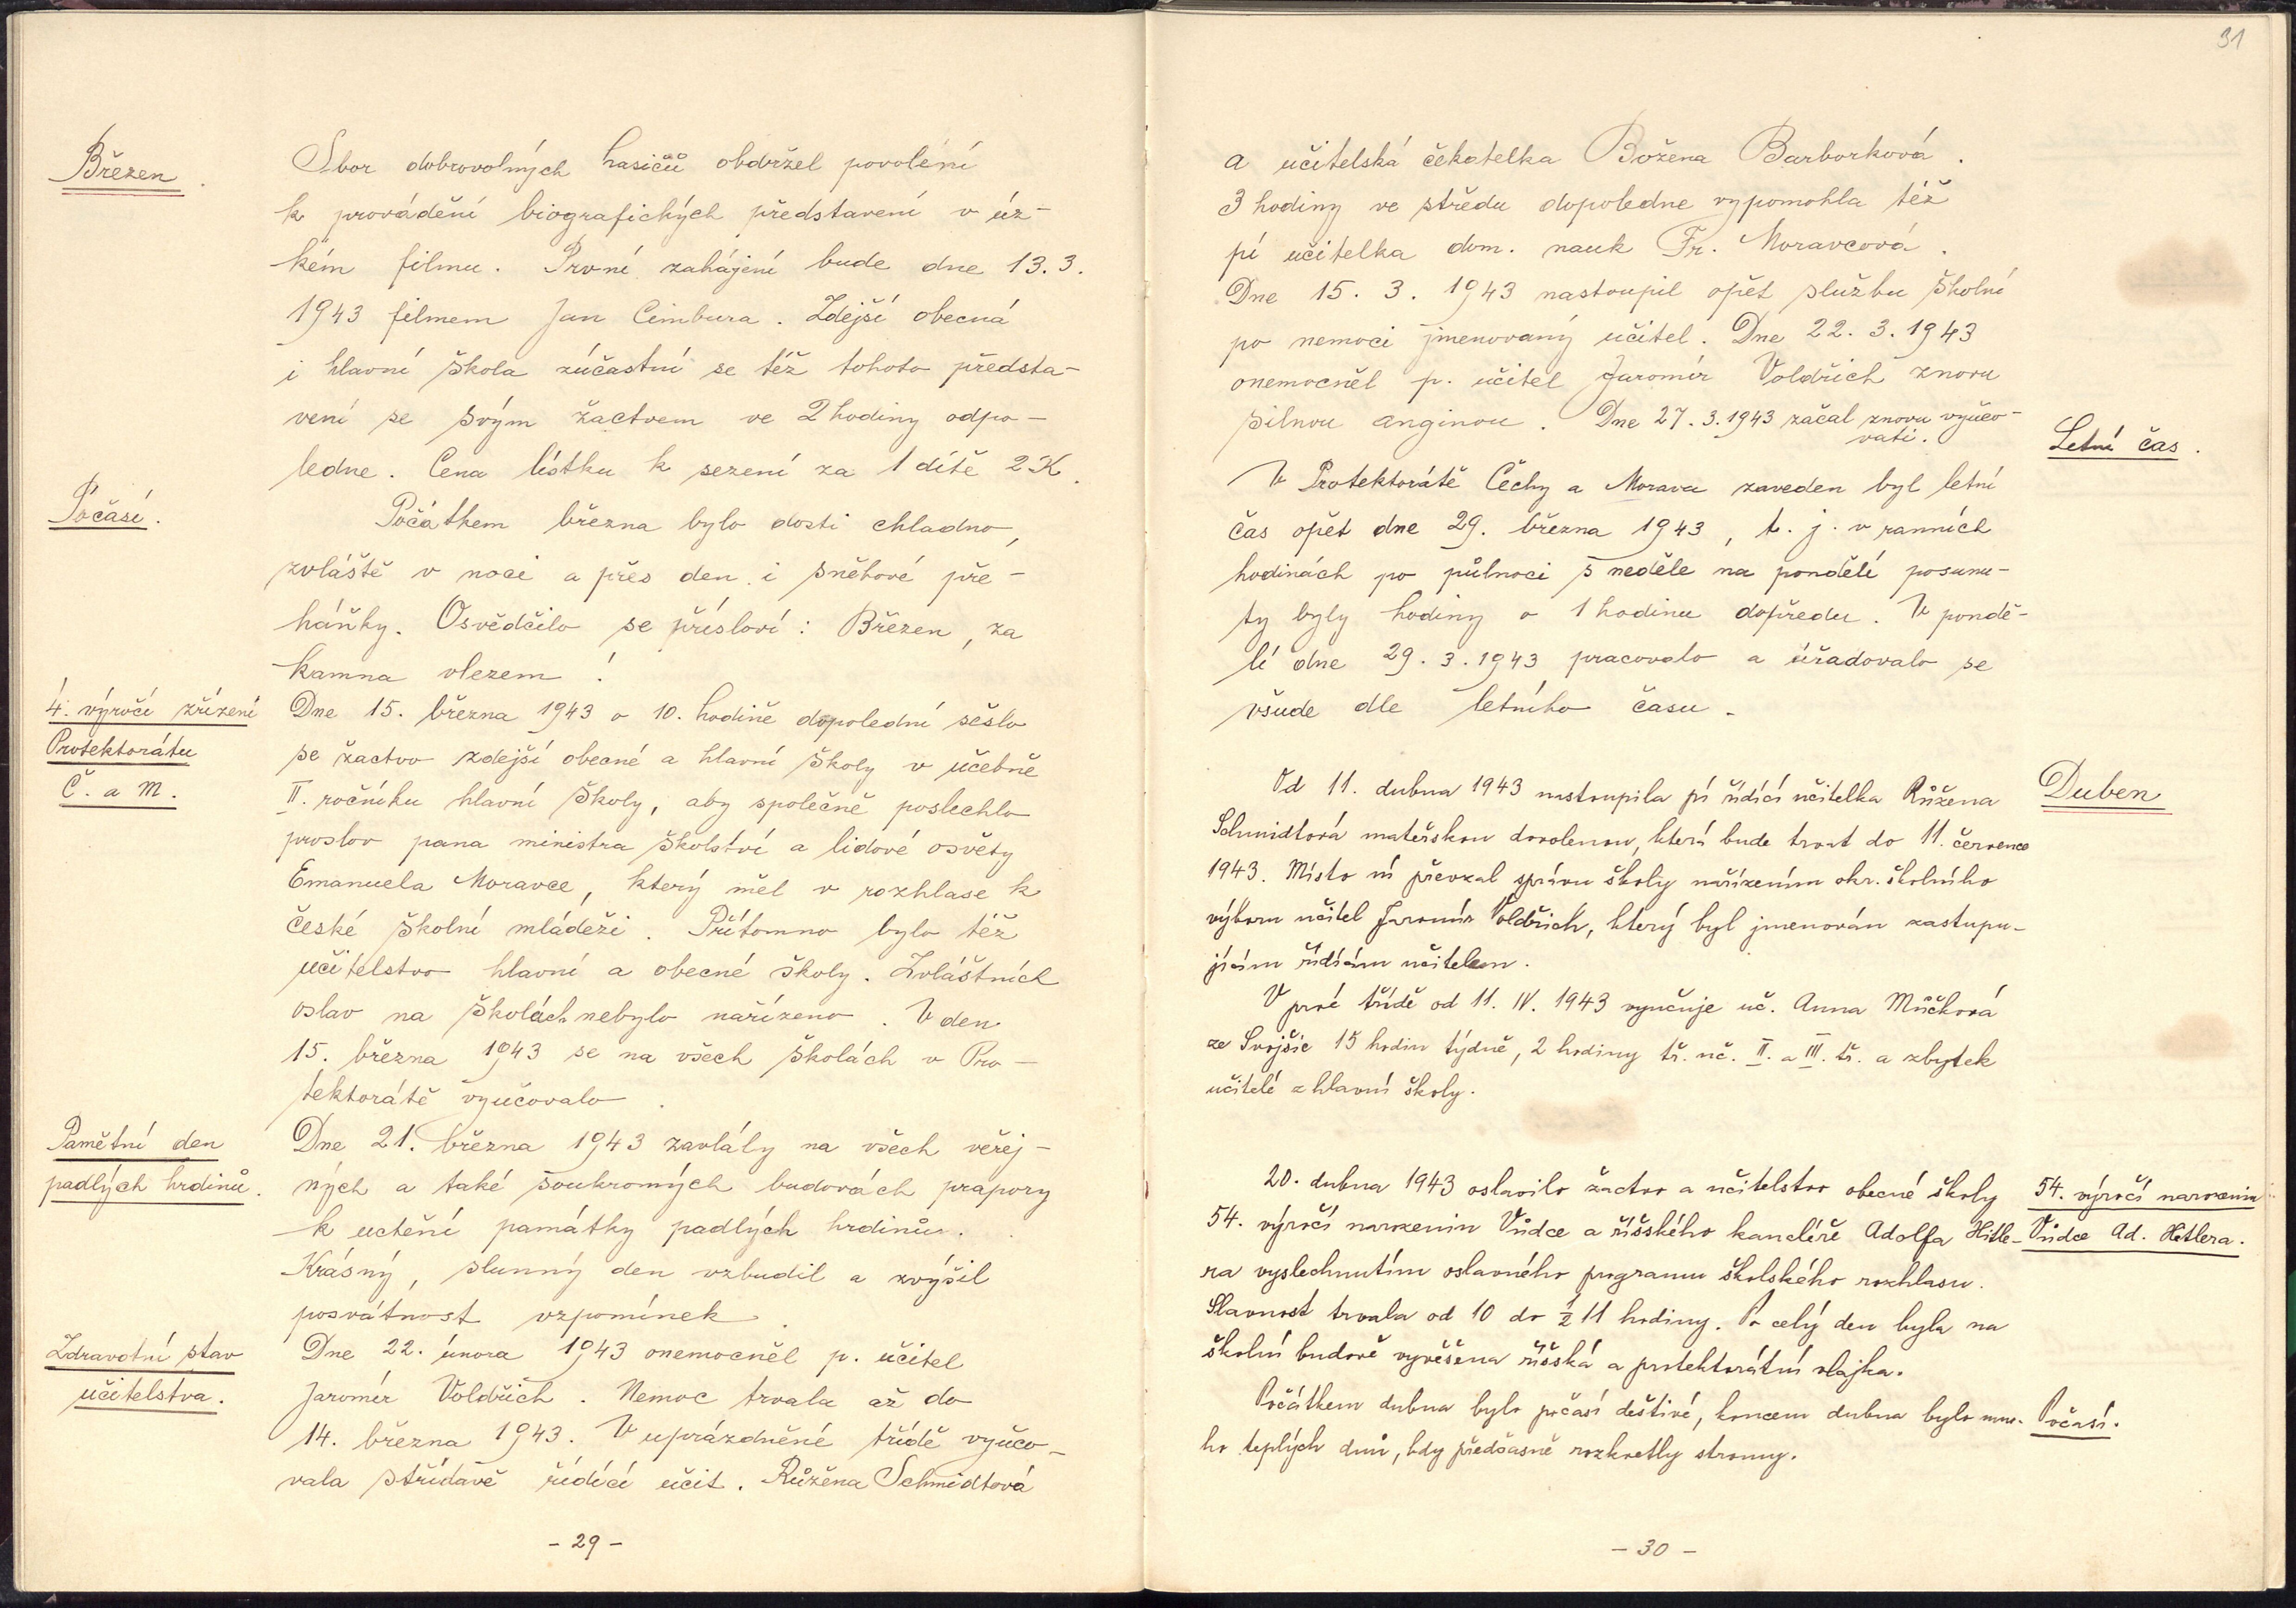 Březen.
Sbor dobrovolných hasičů obdržel povolení
k provádění biografických představení v úz-
kém filmu. První zahájení bude dne 13. 3.
1943 filmem Jan Cimbura. Zdejší obecná
i hlavní škola zúčastní se též tohoto předsta-
vení se svým žactvem ve 2 hodiny odpo-
ledne. Cena lístku k sezení za 1 dítě 2 K.
Počasí.
Počátkem března bylo dosti chladno,
zvláště v noci a přes den i sněhové pře-
háňky. Osvědčilo se přísloví: Březen, za
kamna vlezem!
4. výročí zřízení
Protektorátu
Č. a M.
Dne 15. března 1943 o 10. hodině dopolední sešlo
se žactvo zdejší obecné a hlavní školy v učebně
II. ročníku hlavní školy, aby společně poslechlo
proslov pana ministra školství a lidové osvěty
Emanuela Moravce, který měl v rozhlase k
české školní mládeži. Přítomno bylo též
učitelstvo hlavní a obecné školy. Zvláštních
oslav na školách nebylo nařízeno. V den
15. března 1943 se na všech školách v Pro-
tektorátě vyučovalo.
Pamětní den
padlých hrdinů.
Dne 21. března 1943 zavlály na všech veřej-
ných a také soukromých budovách prapory
k uctění památky padlých hrdinů.
Krásný, slunný den vzbudil a zvýšil
posvátnost vzpomínek.
Zdravotní stav
učitelstva.
Dne 22. února 1943 onemocněl p. učitel
Jaromír Voldřich. Nemoc trvala až do
14. března 1943. V uprázdněné třídě vyučo-
vala střídavě řídící učit. Růžena Schmidtová
- 29 -
31
a učitelská čekatelka Božena Barborková.
3 hodiny ve středu dopoledne vypomohla též
pí učitelka dom. nauk Fr. Moravcová.
Dne 15. 3. 1943 nastoupil opět službu školní
po nemoci jmenovaný učitel. Dne 22. 3. 1943
onemocněl p. učitel Jaromír Voldřich znovu
silnou anginou. Dne 27. 3. 1943 začal znovu vyučo-
vati.
Letní čas.
V Protektorátě Čechy a Morava zaveden byl letní
čas opět dne 29. března 1943, t. j. v ranních
hodinách po půlnoci s neděle na pondělí posunu-
ty byly hodiny o 1 hodinu dopředu. V pondě-
lí dne 29. 3. 1943 pracovalo a úřadovalo se
všude dle letního času.
Duben
Od 11. dubna 1943 nastoupila pí řídící učitelka Růžena
Schmidtová mateřskou dovolenou, která bude trvat do 11. července
1943. Místo ní převzal správu školy nařízením okr. školního
výboru učitel Jaromír Voldřich, který byl jmenován zastupu-
jícím řídícím učitelem.
V prvé třídě od 11. IV. 1943 vyučuje uč. Anna Műčková
ze Svojšic 15 hodin týdně, 2 hodiny tř. uč. II. a III. tř. a zbytek
učitelé z hlavní školy.
20. dubna 1943 oslavilo žactvo a učitelstvo obecné školy
54. výročí narozenin
54. výročí narozenin Vůdce a říšského kancléře Adolfa Hitle-
Vůdce Ad. Hitlera.
ra vyslechnutím oslavného programu školského rozhlasu.
Slavnost trvala od 10 do ½ 11 hodiny. Po celý den byla na
školní budově vyvěšena říšská a protektorátní vlajka.
Počátkem dubna bylo počasí deštivé, koncem dubna bylo mno-
Počasí.
ho teplých dnů, kdy předčasně rozkvetly stromy.
- 30 -